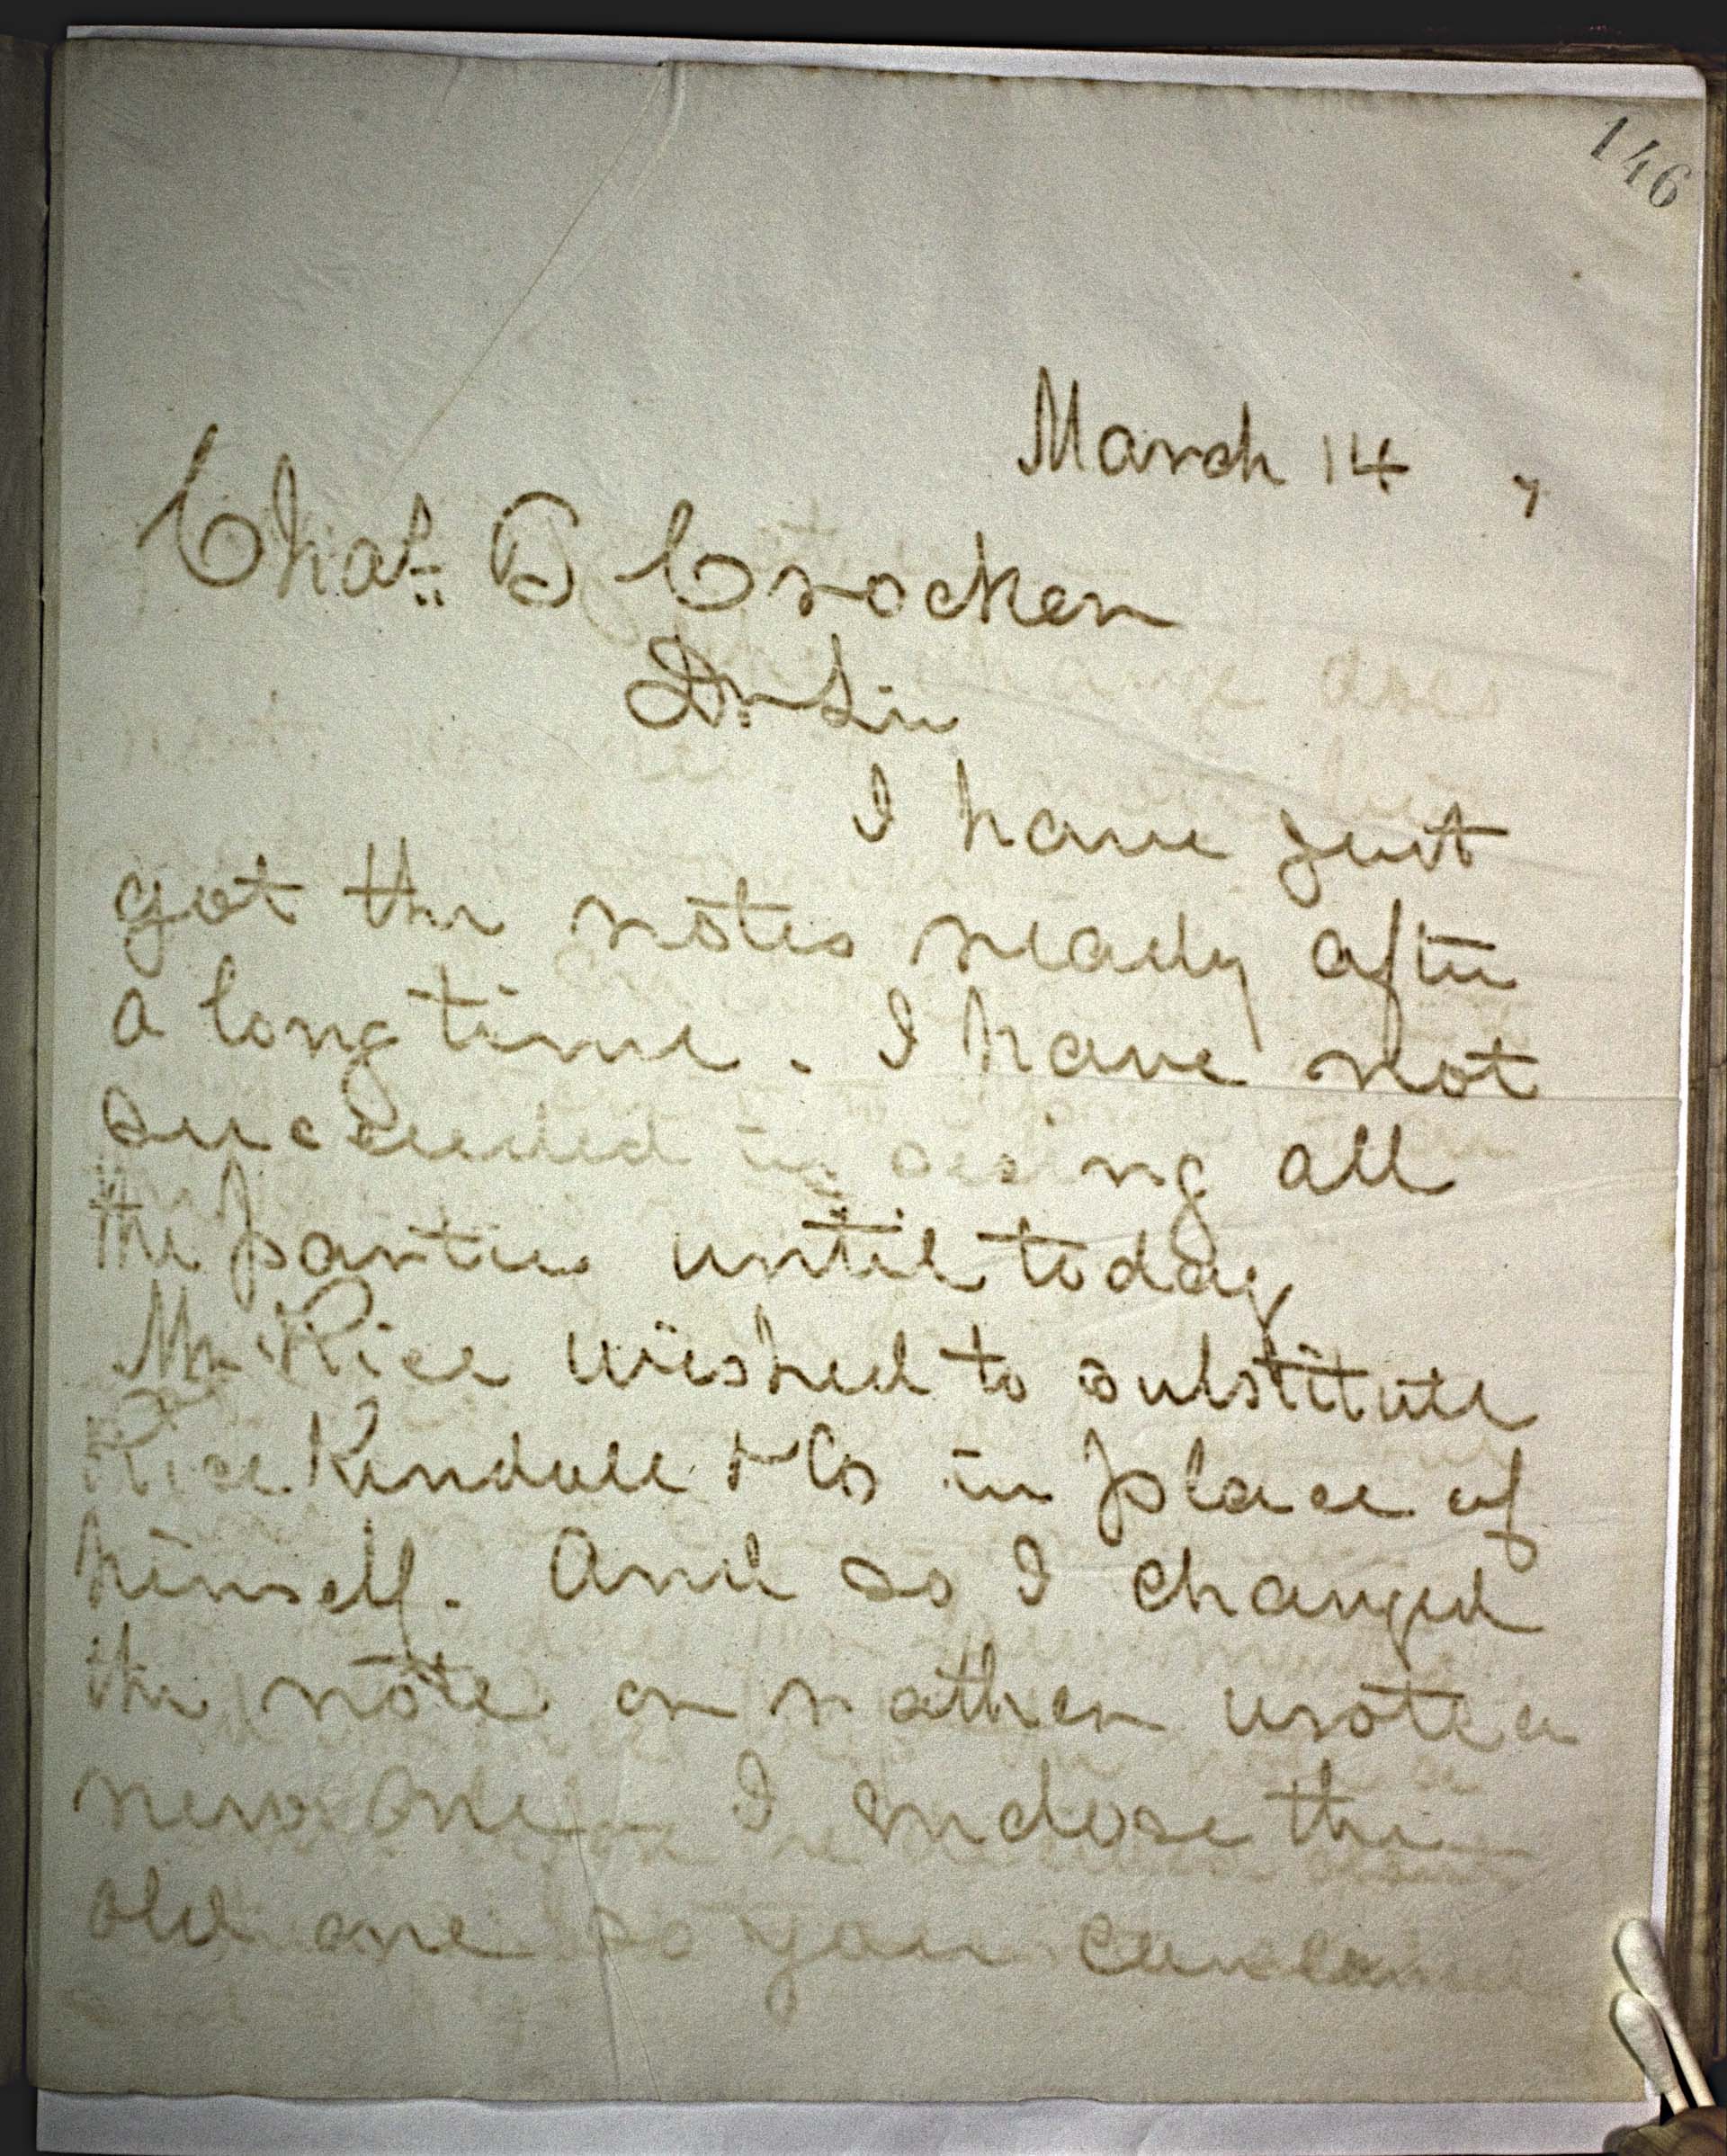 146
March 14 , 
Chas. B Crocker
Dr Sir
I have just
got the notes ready after
a long time. I have not
succeeded in seeing all
the parties until today
Mr Rice wished to substitute
Rice Kendall & Co in place of
himself. And so I changed
the note or rather wrote a
new one - I enclose the
old one so you can cancel